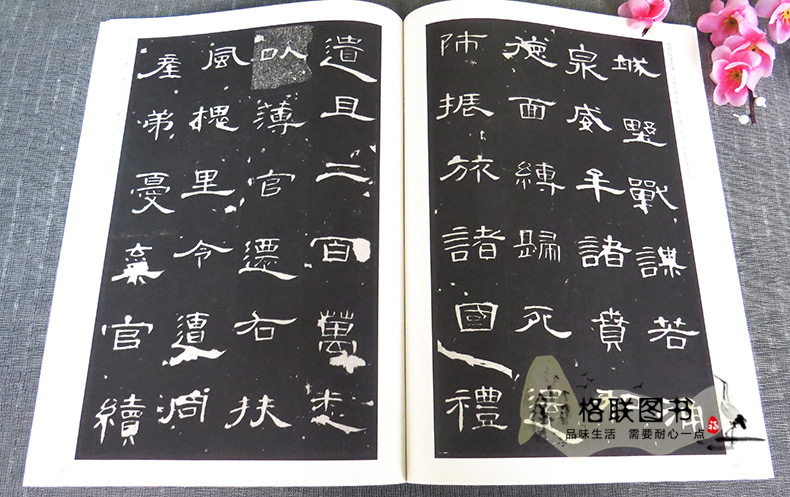 城墅戰謀若涌
泉威牟諸賁和
德面縛歸死還
師振旅諸國禮
遺且二百萬悉
以薄官遷右扶
風槐里令遭同
產弟憂棄官續
格联图书
品味生活 需要耐心一点